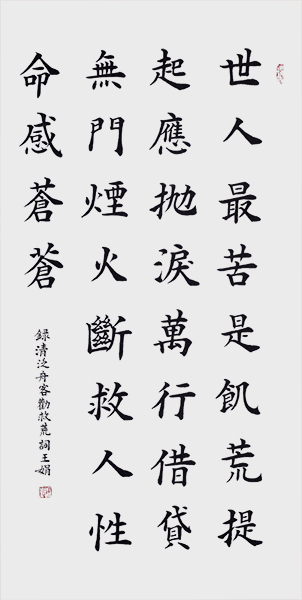 世人最苦是飢荒提
起應抛淚萬行借貸
無門煙火斷救人性
命感蒼蒼
録清泛舟客勸救荒詞王娟